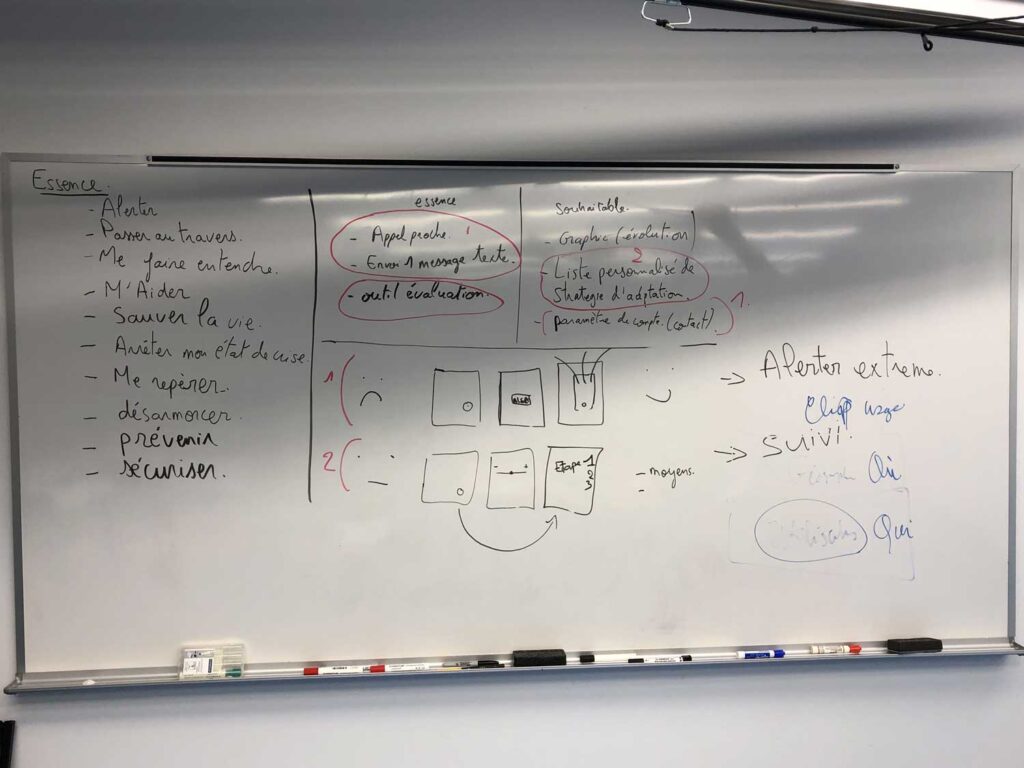 Essence.
- Alerter
- Passer au travers.
- Me faire entendre.
- M'Aider
- Sauver la vie.
- Arrêter mon état de crise.
- Me repérer.
- désarmorcer.
- prévenir
- sécuriser.
essence
- Appel proche. 1
- Envoi 1 message texte.
- outil évaluation.
Souhaitable.
- Graphic (évolution)
2
- Liste personnalisé de
strategie d'adptation.
- (paramètre de compte. (contact). 1.
1
2
- +
Etape 1
2
3
- moyens.
-
→ Alerter extreme.
→ Suivi.
Qui
Qui